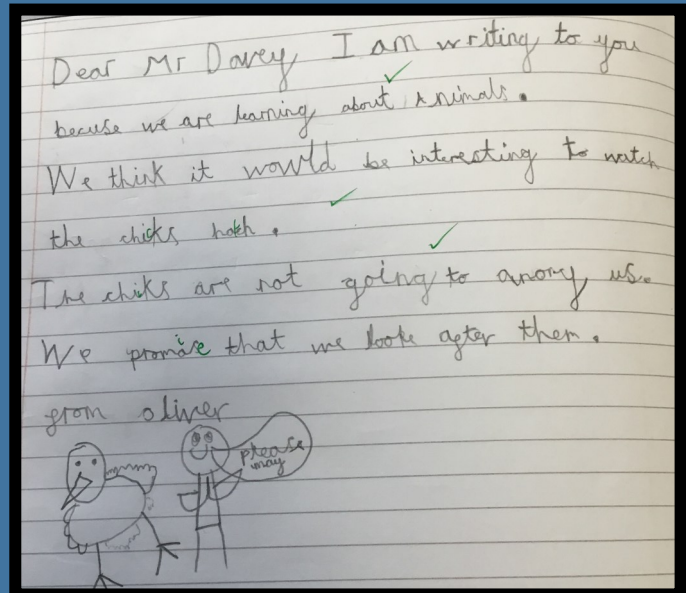 Dear Mr Davey, I am writing to you
becuse we are learning about animals.
We think it would be interesting to watch
the chicks hach.
The chiks are not going to anony us.
We promise that we look after them.
from oliver
please
may